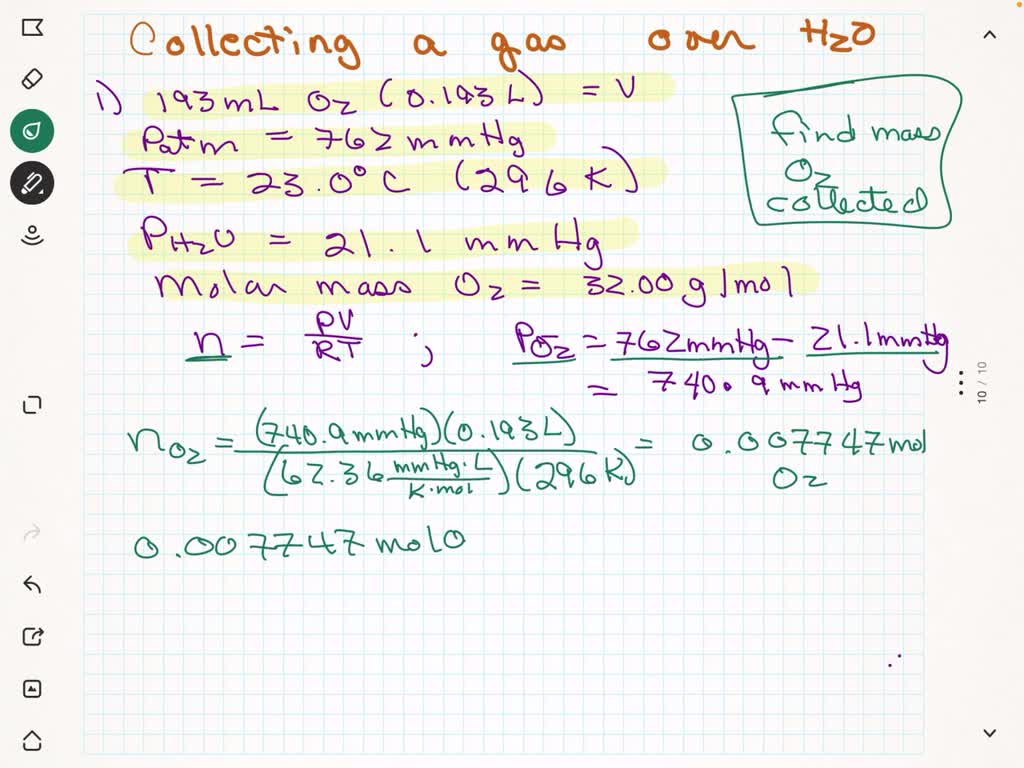 Collecting a gas over H2O
1) 193 mL O2 (0.193 L) = V
Patm = 762 mmHg
T = 23.0°C (296 K)
PH2O = 21.1 mm Hg
Molar mass O2 = 32.00 g/mol
find mass
O2
collected
n = PV/RT ; PO2 = 762mmHg - 21.1mmHg
= 740.9 mmHg
nO2 = (740.9mmHg)(0.193L)/(62.36 mmHg·L/K·mol)(296K) = 0.007747mol
O2
0.007747 mol O
10 / 10